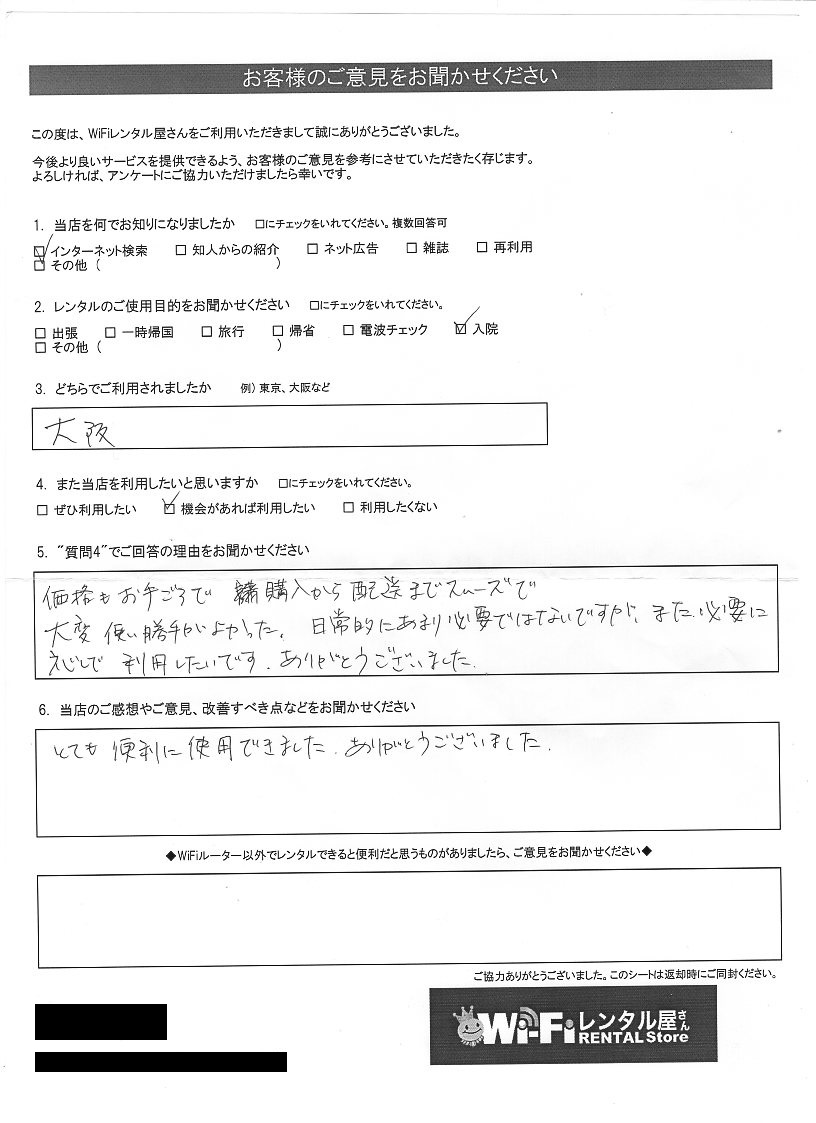 お客様のご意見をお聞かせください
この度は、WiFiレンタル屋さんをご利用いただきまして誠にありがとうございました。
今後より良いサービスを提供できるよう、お客様のご意見を参考にさせていただきたく存じます。
よろしければ、アンケートにご協力いただけましたら幸いです。
1. 当店を何でお知りになりましたか □にチェックをいれてください。複数回答可
☑ インターネット検索 □ 知人からの紹介 □ ネット広告 □ 雑誌 □ 再利用
□ その他 ( )
2. レンタルのご使用目的をお聞かせください □にチェックをいれてください。
□ 出張 □ 一時帰国 □ 旅行 □ 帰省 □ 電波チェック ☑ 入院
□ その他 ( )
3. どちらでご利用されましたか 例) 東京、大阪など
大阪
4. また当店を利用したいと思いますか □にチェックをいれてください。
□ ぜひ利用したい ☑ 機会があれば利用したい □ 利用したくない
5. "質問4"でご回答の理由をお聞かせください
価格もお手ごろで 購入から配送までスムーズで
大変 使い勝手がよかった。日常的にあまり必要ではないですが、また必要に
応じて 利用したいです。ありがとうございました。
6. 当店のご感想やご意見、改善すべき点などをお聞かせください
とても 便利に使用できました。ありがとうございました。
◆WiFiルーター以外でレンタルできると便利だと思うものがありましたら、ご意見をお聞かせください◆
ご協力ありがとうございました。このシートは返却時にご同封ください。
Wi-Fiレンタル屋さん
RENTAL Store